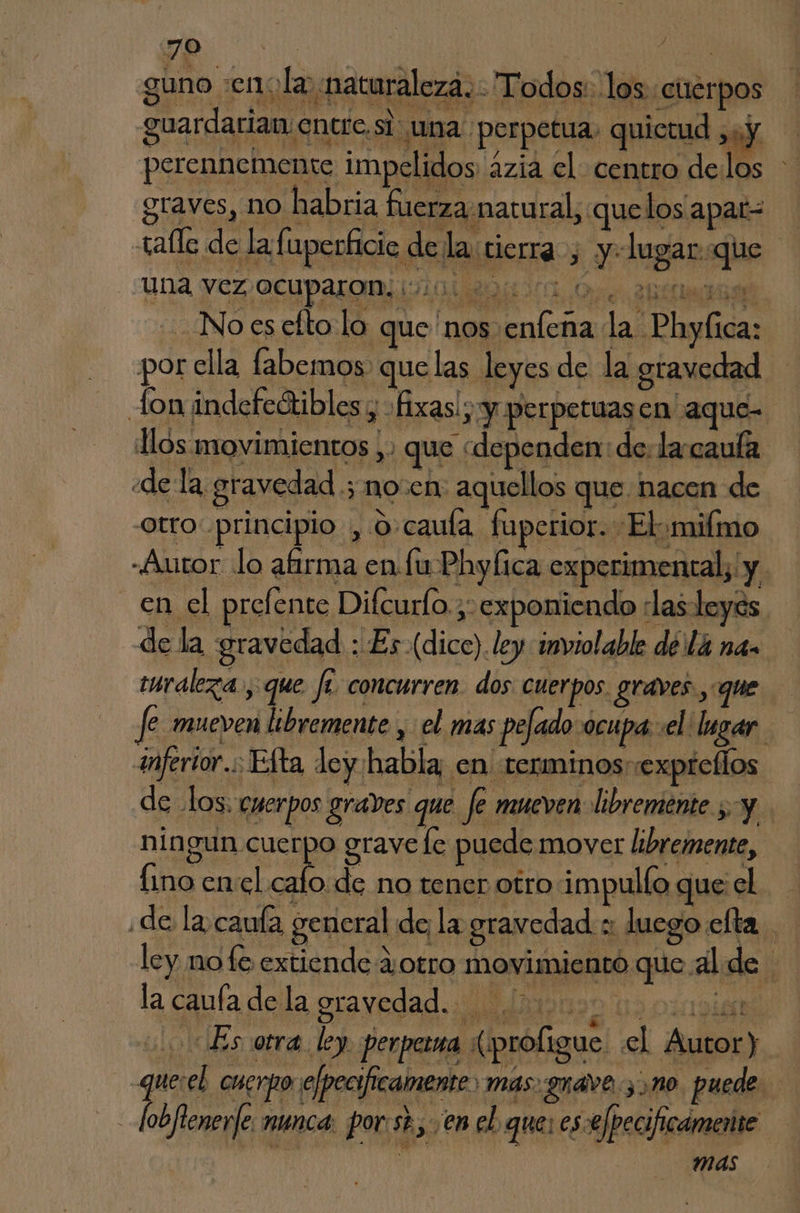 70
guno en la naturaleza. Todos los cuerpos
guardarian entre sì una perpetua quietud, y
perennemente impelidos ázia el centro de los
graves, no habria fuerza natural, que los apar-
taſſe de la ſuperficie de la tierra, y lugar que
una vez ocuparon.
No es eſto lo que nos enſeña la Phyſica:
por ella ſabemos que las leyes de la gravedad
ſon indefectibles, fixas, y perpetuas en aque-
llos movimientos, que dependen de la cauſa
de la gravedad; no en aquellos que nacen de
otro principio, ò cauſa ſuperior. El miſmo
Autor lo afirma en ſu Phyſica experimental, y
en el preſente Diſcurſo; exponiendo las leyes
de la gravedad: Es (dice) ley inviolable de la na-
turaleza, que ſi concurren dos cuerpos graves, que
ſe mueven libremente, el mas peſado ocupa el lugar
inferior. Eſta ley habla en terminos expreſſos
de los cuerpos graves que ſe mueven libremente, y
ningun cuerpo grave ſe puede mover libremente,
ſino en el caſo de no tener otro impulſo que el
de la cauſa general de la gravedad: luego eſta
ley no ſe extiende à otro movimiento que al de
la cauſa de la gravedad.
Es otra ley perpetua (proſigue el Autor)
que el cuerpo eſpecificamente mas grave, no puede
ſobſtenerſe nunca por sì, en el que es eſpecificamente
mas